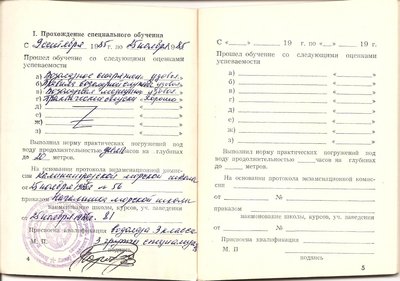 I. Прохождение специального обучения
С 9 октября 1985 г. по 25 ноября 1985
Прошел обучение со следующими оценками
успеваемости
а) Водолазное снаряжение удовл.
б) Правила водолазной службы удовл.
в) Водолазная медицина удовл.
г) Практические спуски хорошо
д)
е)
ж)
з)
Выполнил норму практических погружений под
воду продолжительностью часов на глубинах
до 20 метров.
На основании протокола экзаменационной комиссии
Калининградской морской школы
25 ноября 1985 № 56
приказом Начальника морской школы
наименование школы, курсов, уч. заведения
от 25 ноября 1985 № 81
Присвоена квалификация водолаза 3 класса
М. П. 3 группы специализации
4
С « » 19 г. по « » 19 г.
Прошел обучение со следующими оценками
успеваемости
а) « »
б) « »
в) « »
г) « »
д) « »
е) « »
ж) « »
з) « »
Выполнил норму практических погружений под
воду продолжительностью часов на глубинах
до метров.
На основании протокола экзаменационной комиссии
от №
приказом
наименование школы, курсов, уч. заведения
от №
Присвоена квалификация
М. П
подпись
5